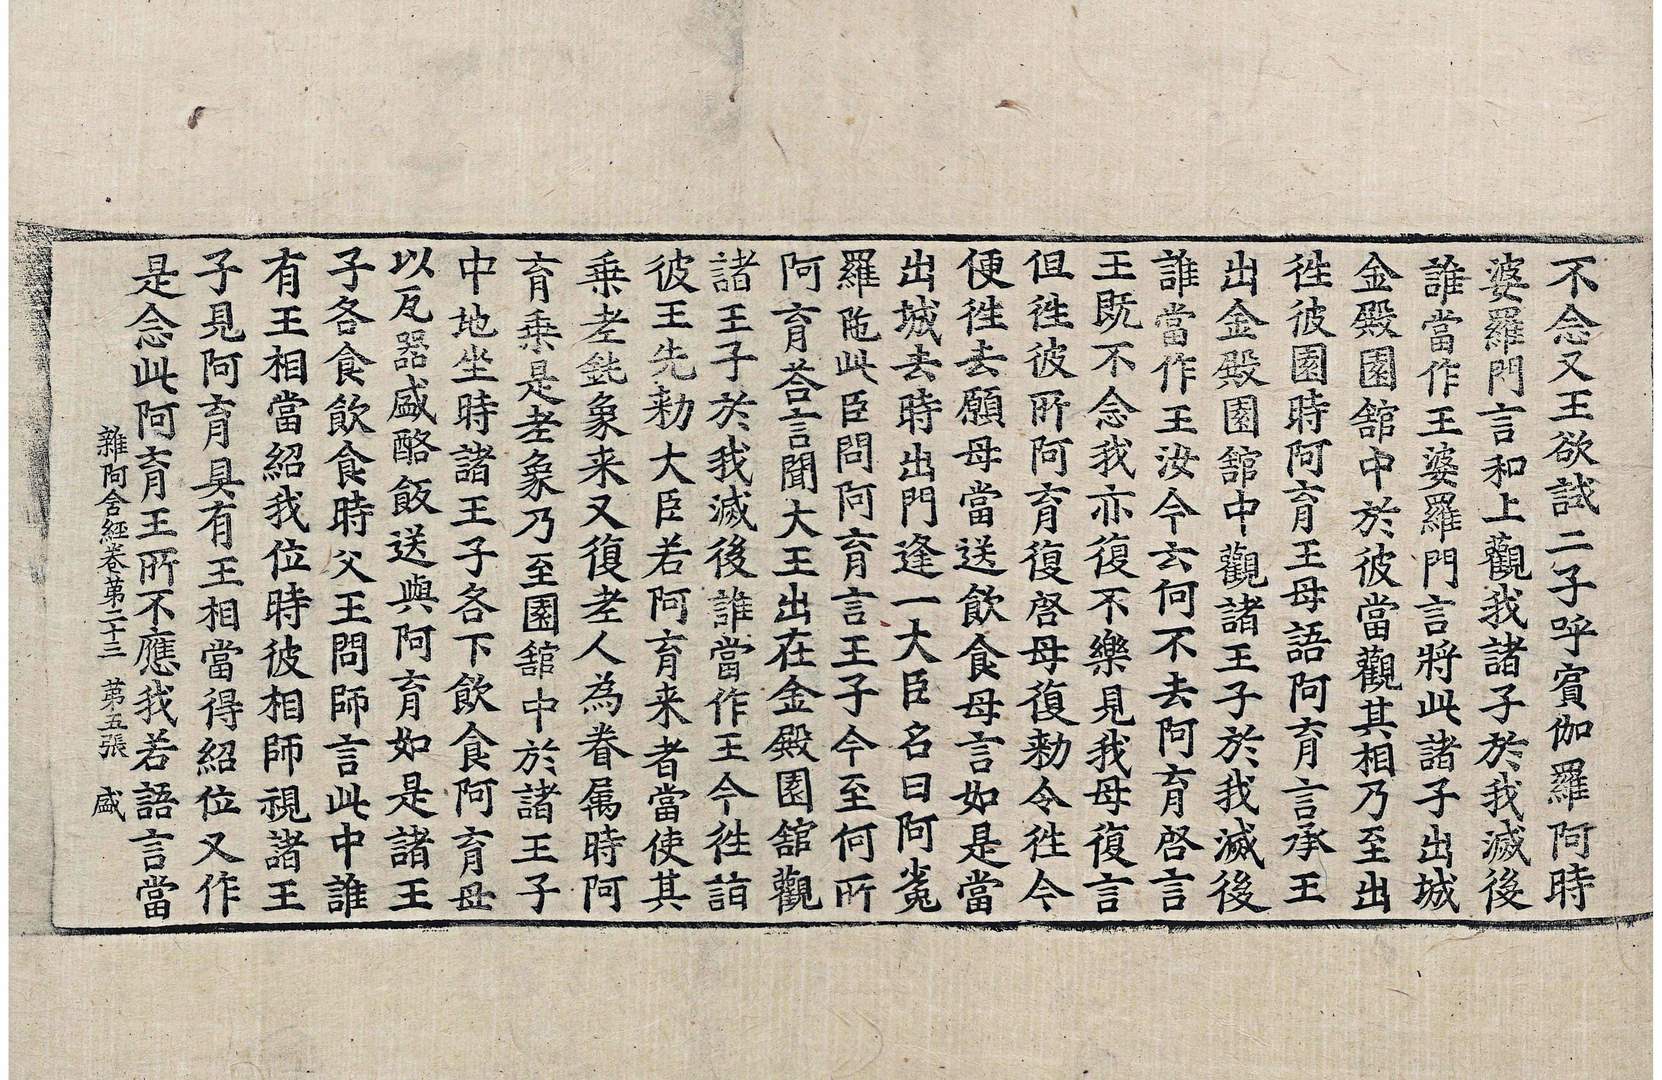 不念又王欲試二子呼賔伽羅阿時
婆羅門言和上觀我諸子於我滅後
誰當作王婆羅門言將此諸子出城
金殿園舘中於彼當觀其相乃至出
徃彼園時阿育王母語阿育言承王
出金殿園舘中觀諸王子於我滅後
誰當作王汝今云何不去阿育啓言
王既不念我亦復不樂見我母復言
但徃彼所阿育復啓母復勑令徃今
便徃去願母當送飲食母言如是當
出城去時出門逢一大臣名曰阿㝹
羅陁此臣問阿育言王子今至何所
阿育荅言聞大王出在金殿園舘觀
諸王子於我滅後誰當作王今徃詣
彼王先勑大臣若阿育来者當使其
乗老鈍象来又復老人為眷屬時阿
育乗是老象乃至園舘中於諸王子
中地坐時諸王子各下飲食阿育母
以瓦器盛酪飯送與阿育如是諸王
子各食飲食時父王問師言此中誰
有王相當紹我位時彼相師視諸王
子見阿育具有王相當得紹位又作
是念此阿育王所不應我若語言當
雜阿含經卷苐二十三　第五張　盛